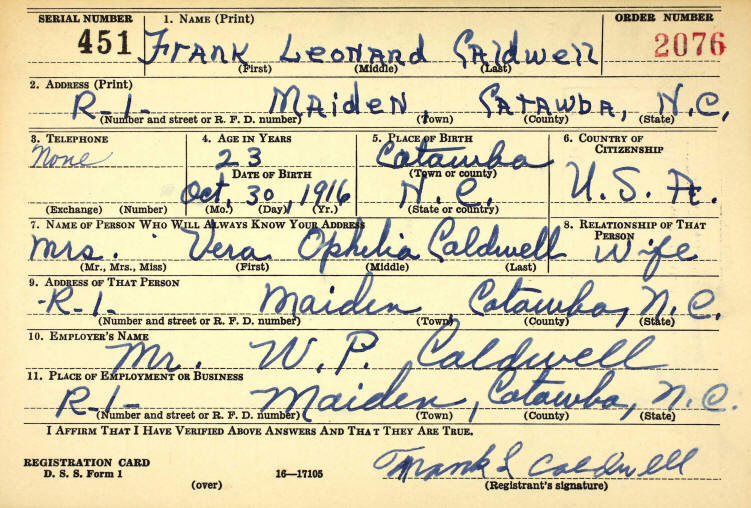 SERIAL NUMBER 1. NAME (Print) ORDER NUMBER
451 FRANK LEONARD CALDWELL 2076
(First) (Middle) (Last)
2. ADDRESS (Print)
R-1- MAIDEN, CATAWBA, N.C.
(Number and street or R. F. D. number) (Town) (County) (State)
3. TELEPHONE 4. AGE IN YEARS 5. PLACE OF BIRTH 6. COUNTRY OF CITIZENSHIP
None 23 Catawba U.S.A.
(Town or county)
DATE OF BIRTH
Oct. 30, 1916 N.C.
(Exchange) (Number) (Mo.) (Day) (Yr.) (State or country)
7. NAME OF PERSON WHO WILL ALWAYS KNOW YOUR ADDRESS 8. RELATIONSHIP OF THAT PERSON
Mrs. Vera Ophelia Caldwell Wife
(Mr., Mrs., Miss) (First) (Middle) (Last)
9. ADDRESS OF THAT PERSON
-R-1- Maiden, Catawba, N.C.
(Number and street or R. F. D. number) (Town) (County) (State)
10. EMPLOYER'S NAME
Mr. W. P. Caldwell
11. PLACE OF EMPLOYMENT OR BUSINESS
R-1- Maiden, Catawba, N.C.
(Number and street or R. F. D. number) (Town) (County) (State)
I AFFIRM THAT I HAVE VERIFIED ABOVE ANSWERS AND THAT THEY ARE TRUE.
REGISTRATION CARD Frank L Caldwell
D. S. S. Form 1 16—17105 (Registrant's signature)
(over)